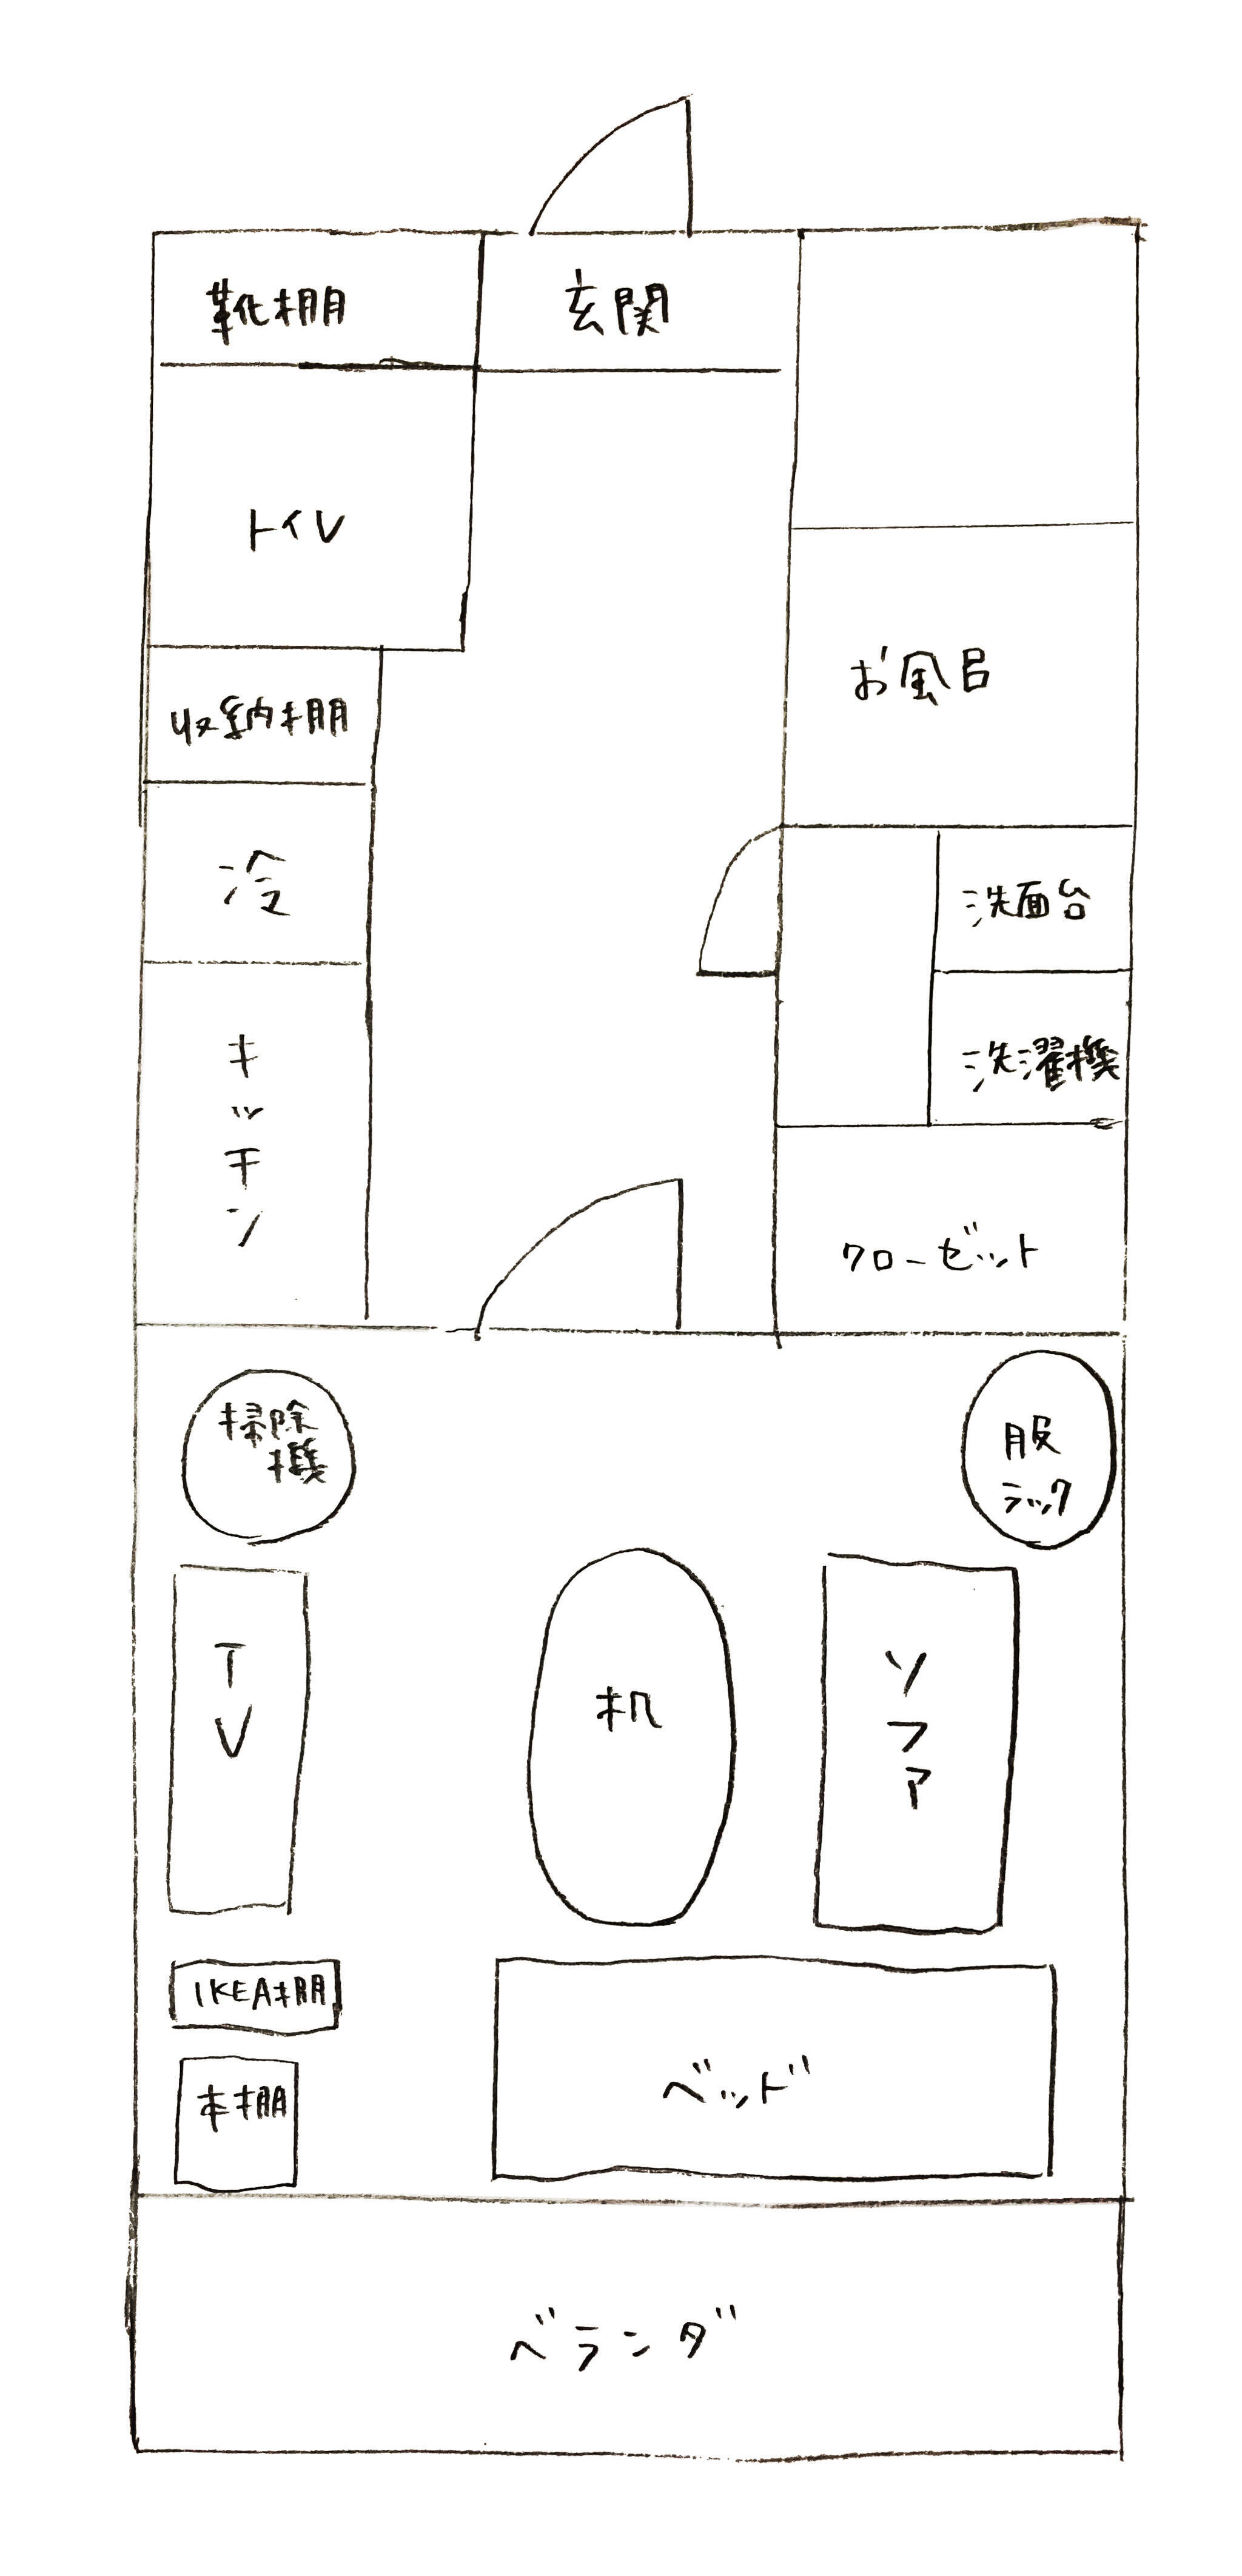 靴棚
玄関
トイレ
お風呂
収納棚
冷
洗面台
キッチン
洗濯機
クローゼット
掃除
機
服
ラック
TV
机
ソファ
IKEA棚
本棚
ベッド
ベランダ